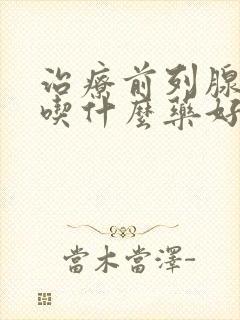 治療前列腺
喫什麼藥好
當木當澤-